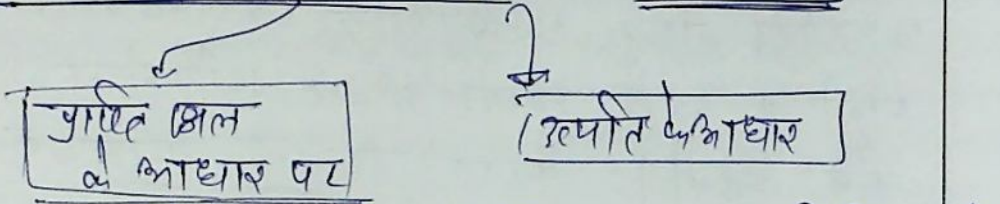 प्राप्ति स्थल
के आधार पर
उत्पति के आधार